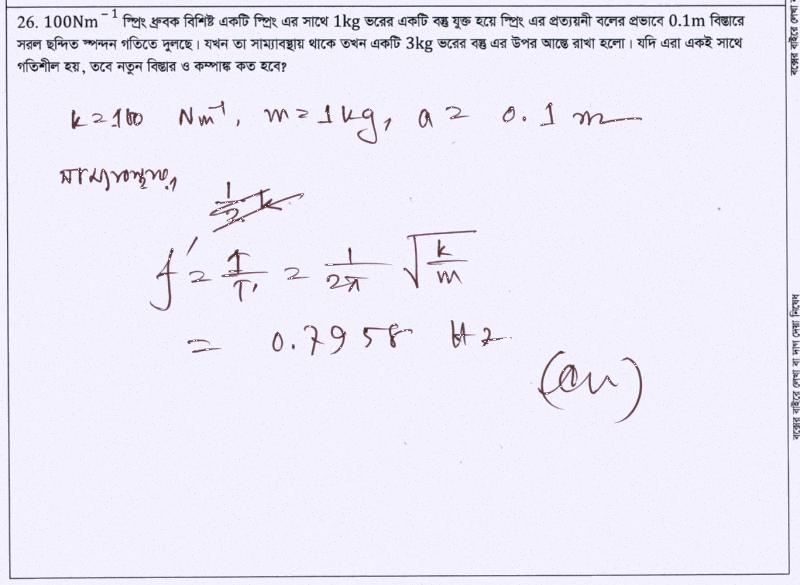 26. 100Nm⁻¹ স্প্রিং ধ্রুবক বিশিষ্ট একটি স্প্রিং এর সাথে 1kg ভরের একটি বস্তু যুক্ত হয়ে স্প্রিং এর প্রত্যয়নী বলের প্রভাবে 0.1m বিস্তারে
সরল ছন্দিত স্পন্দন গতিতে দুলছে। যখন তা সাম্যাবস্থায় থাকে তখন একটি 3kg ভরের বস্তু এর উপর আস্তে রাখা হলো। যদি এরা একই সাথে
গতিশীল হয়, তবে নতুন বিস্তার ও কম্পাঙ্ক কত হবে?
k = 100 Nm⁻¹, m = 1 kg, a = 0.1 m
সাম্যাবস্থায়,
1/2 k
f' = 1/T' = 1/2π √(k/m)
= 0.7958 Hz
(Ans)
বক্সের বাইরে লেখা বা দাগ দেয়া নিষেধ